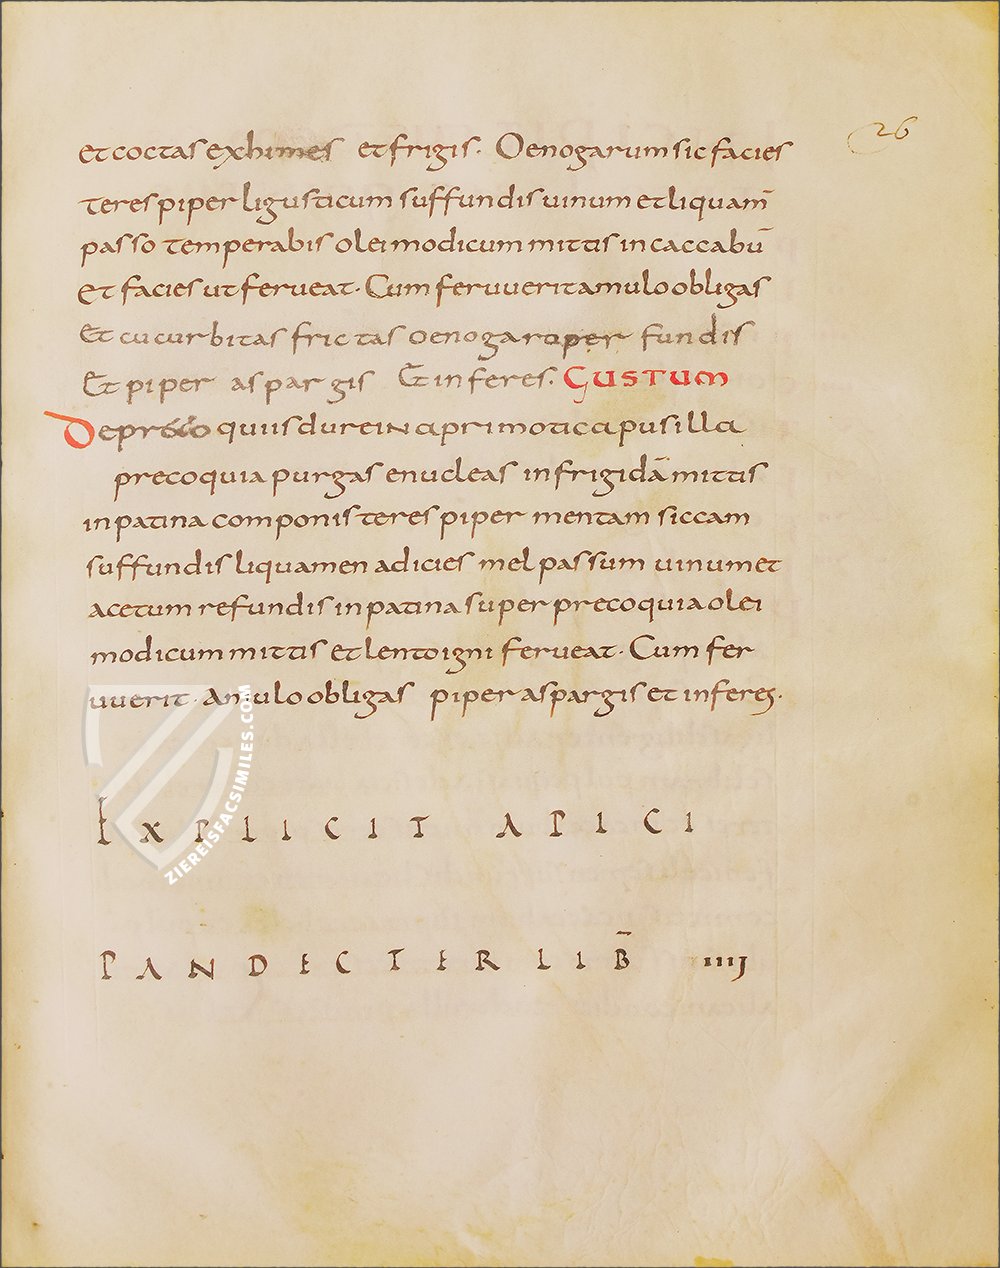 26
et coctas exhimes et frigis. Oenogarum sic facies
teres piper ligusticum suffundis uinum et liquam̄
passo temperabis olei modicum mittis in caccabū
et facies ut ferueat. Cum feruuerit amulo obligas
et cucurbitas frictas oenogaro per fundis
Et piper aspargis Et inferes. GUSTUM
De precoquiis durein aprimotica pusilla
precoquia purgas enucleas in frigidā mittis
in patina componis teres piper mentam siccam
suffundis liquamen adicies mel passum uinum et
acetum refundis in patina super precoquia olei
modicum mittis et lento igni ferueat. Cum fer
uuerit. Amulo obligas piper aspargis et inferes.
EXPLICIT APICI
PANDECTER LIB̄ IIIJ
ZIEREISFACSIMILES.COM